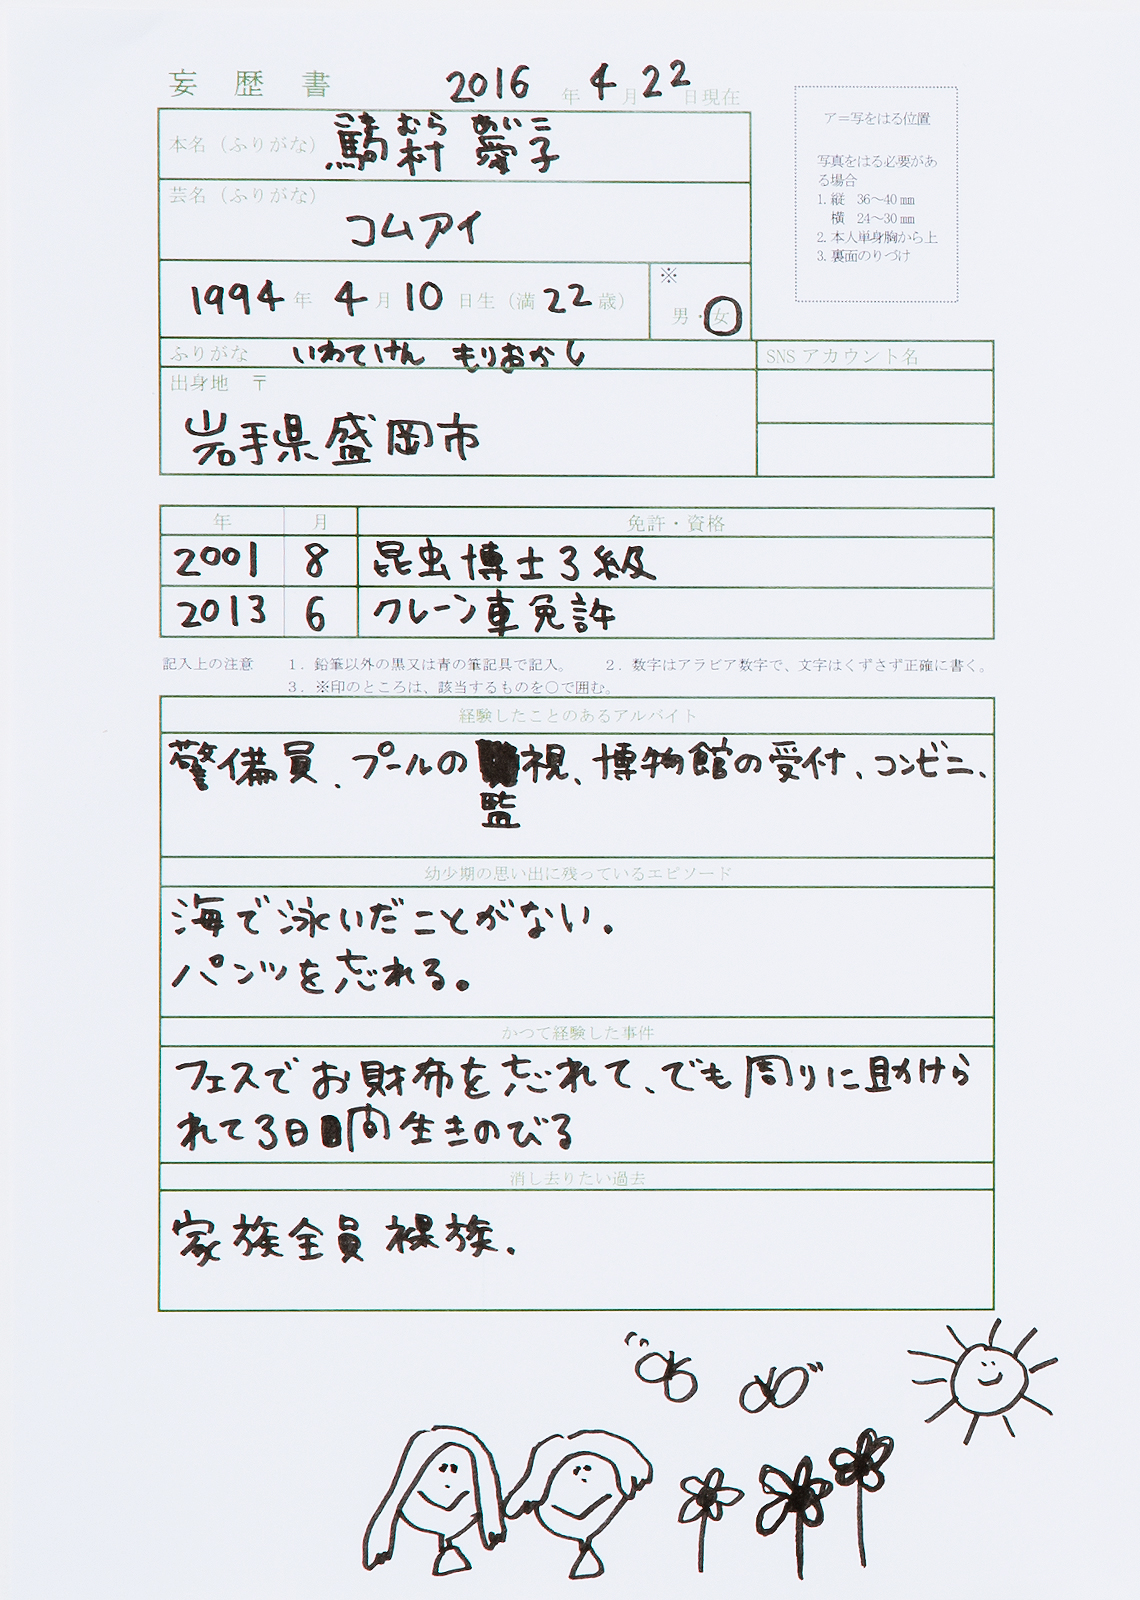 妄歴書 2016年4月22日現在
ア=写をはる位置
写真をはる必要があ
る場合
1. 縦 36〜40mm
横 24〜30mm
2. 本人単身胸から上
3. 裏面のりづけ
こまむら あいこ
本名（ふりがな） 村 愛子
芸名（ふりがな）
コムアイ
1994年4月10日生（満22歳）
※
男・女
ふりがな いわてけん もりおかし
SNSアカウント名
出身地 〒
岩手県盛岡市
年 月 免許・資格
2001 8 昆虫博士3級
2013 6 クレーン車免許
記入上の注意 1．鉛筆以外の黒又は青の筆記具で記入。 2．数字はアラビア数字で、文字はくずさず正確に書く。
3．※印のところは、該当するものを○で囲む。
経験したことのあるアルバイト
警備員、プールの監視、博物館の受付、コンビニ、
幼少期の思い出に残っているエピソード
海で泳いだことがない。
パンツを忘れる。
かつて経験した事件
フェスでお財布を忘れて、でも周りに助けら
れて3日間生きのびる
消し去りたい過去
家族全員裸族。